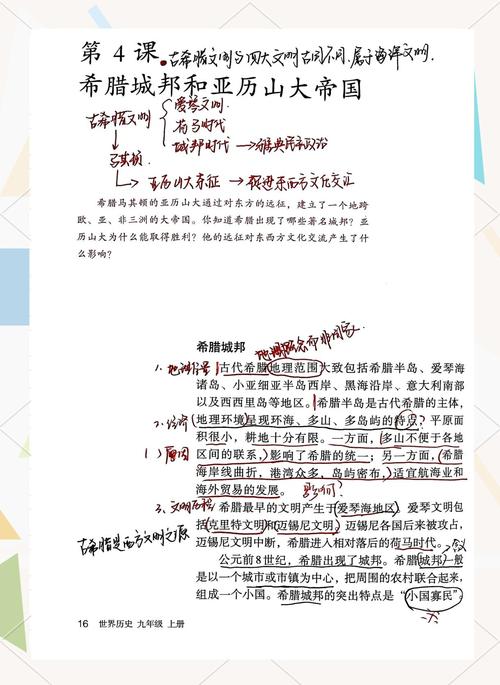 第 4 课 古希腊文明与四大文明古国不同,属于海洋文明.
希腊城邦和亚历山大帝国
古希腊文明 { 爱琴文明
荷马时代
城邦时代 → 雅典民主政治
马其顿
→ 亚历山大东征 → 促进东西方文化交汇
希腊马其顿的亚历山大通过对东方的远征,建立了一个地跨
欧、亚、非三洲的大帝国。你知道希腊出现了哪些著名城邦?亚
历山大为什么能取得胜利?他的远征对东西方文化交流产生了什
么影响?
希腊城邦 地理概念而非国家
1. 地理范围 古代希腊地理范围大致包括希腊半岛、爱琴海
诸岛、小亚细亚半岛西岸、黑海沿岸、意大利南部
以及西西里岛等地区。希腊半岛是古代希腊的主体,
2. 经济 地理环境呈现环海、多山、多岛屿的特点。平原面
积很小,耕地十分有限。一方面,多山不便于各地
1) 原因 区间的联系,影响了希腊的统一;另一方面,希腊
海岸线曲折,港湾众多,岛屿密布,适宜航海业和
海外贸易的发展。
3. 文明历程 希腊最早的文明产生于爱琴海地区。爱琴文明包
括克里特文明和迈锡尼文明。迈锡尼各国后来被攻占,
古希腊是西方文明之源 迈锡尼文明中断,希腊进入相对落后的荷马时代。
公元前8世纪,希腊出现了城邦。希腊城邦一般
是以一个城市或市镇为中心,把周围的农村联合起来,
组成一个小国。希腊城邦的突出特点是“小国寡民”。
16 世界历史 九年级 上册